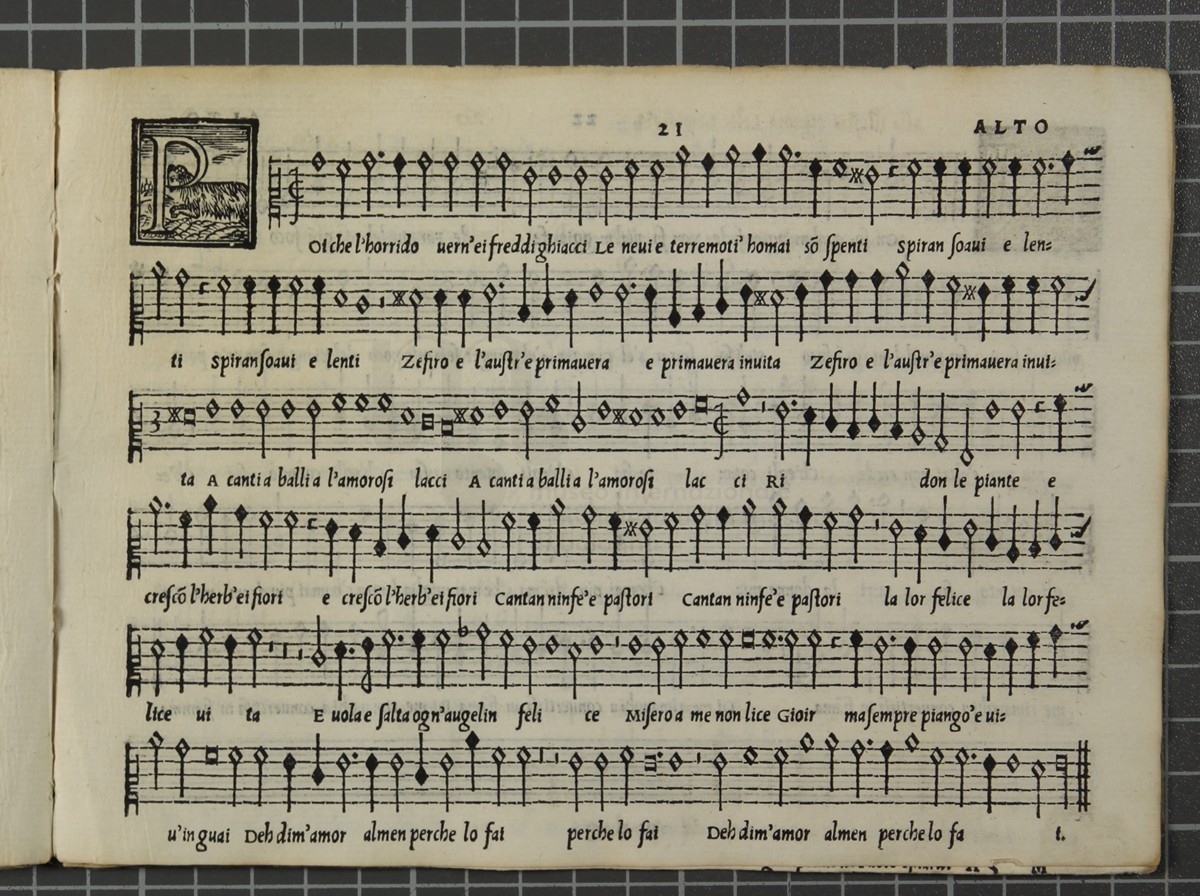 21 ALTO
POi che l'horrido uern'ei freddi ghiacci Le neui e terremoti' homai sō ſpenti ſpiran ſoaui e len=
ti spiran ſoaui e lenti Zefiro e l'auſtr'e primauera e primauera inuita Zefiro e l'auſtr'e primauera inui=
3 ta A canti a balli a l'amoroſi lacci A canti a balli a l'amoroſi lac ci Ri don le piante e
creſcō l'herb'ei fiori e creſcō l'herb'ei fiori Cantan ninfe'e paſtori Cantan ninfe'e paſtori la lor felice la lor fe=
lice ui ta E uola e ſalta ogn'augel in feli ce Miſero a me non lice Gioir ma ſempre piango'e ui=
u'in guai Deh dim'amor almen perche lo fai perche lo fai Deh dim'amor almen perche lo fa i.